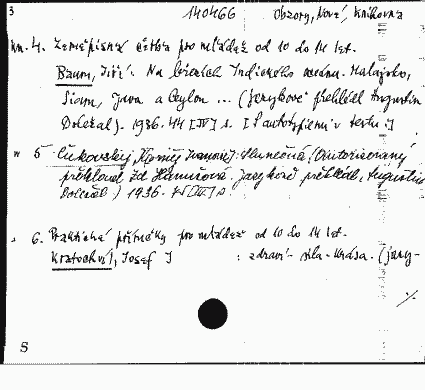 3
140466 Obzory, Nové, Knihovna
kn. 4. Zeměpisná četba pro mládež od 10 do 14 let.
Baum, Jiří: Na březích Indického oceánu. Malajsko,
Siam, Java a Ceylon ... (Jazykově přehlédl Augustin
Doležal). 1936. 44 [IV] s. [S autotypiemi v textu.]
" 5 Čukovskij, Korněj Ivanovič: Slunečná. (Autorisovaný
překlad Zd. Hanušová. Jazykově přehlédl Augustin
Doležal.) 1936.
" 6. Praktické příručky pro mládež od 10 do 14 let.
Kratochvíl, Josef J : zdraví - síla - krása. (Jazy-
./.
S